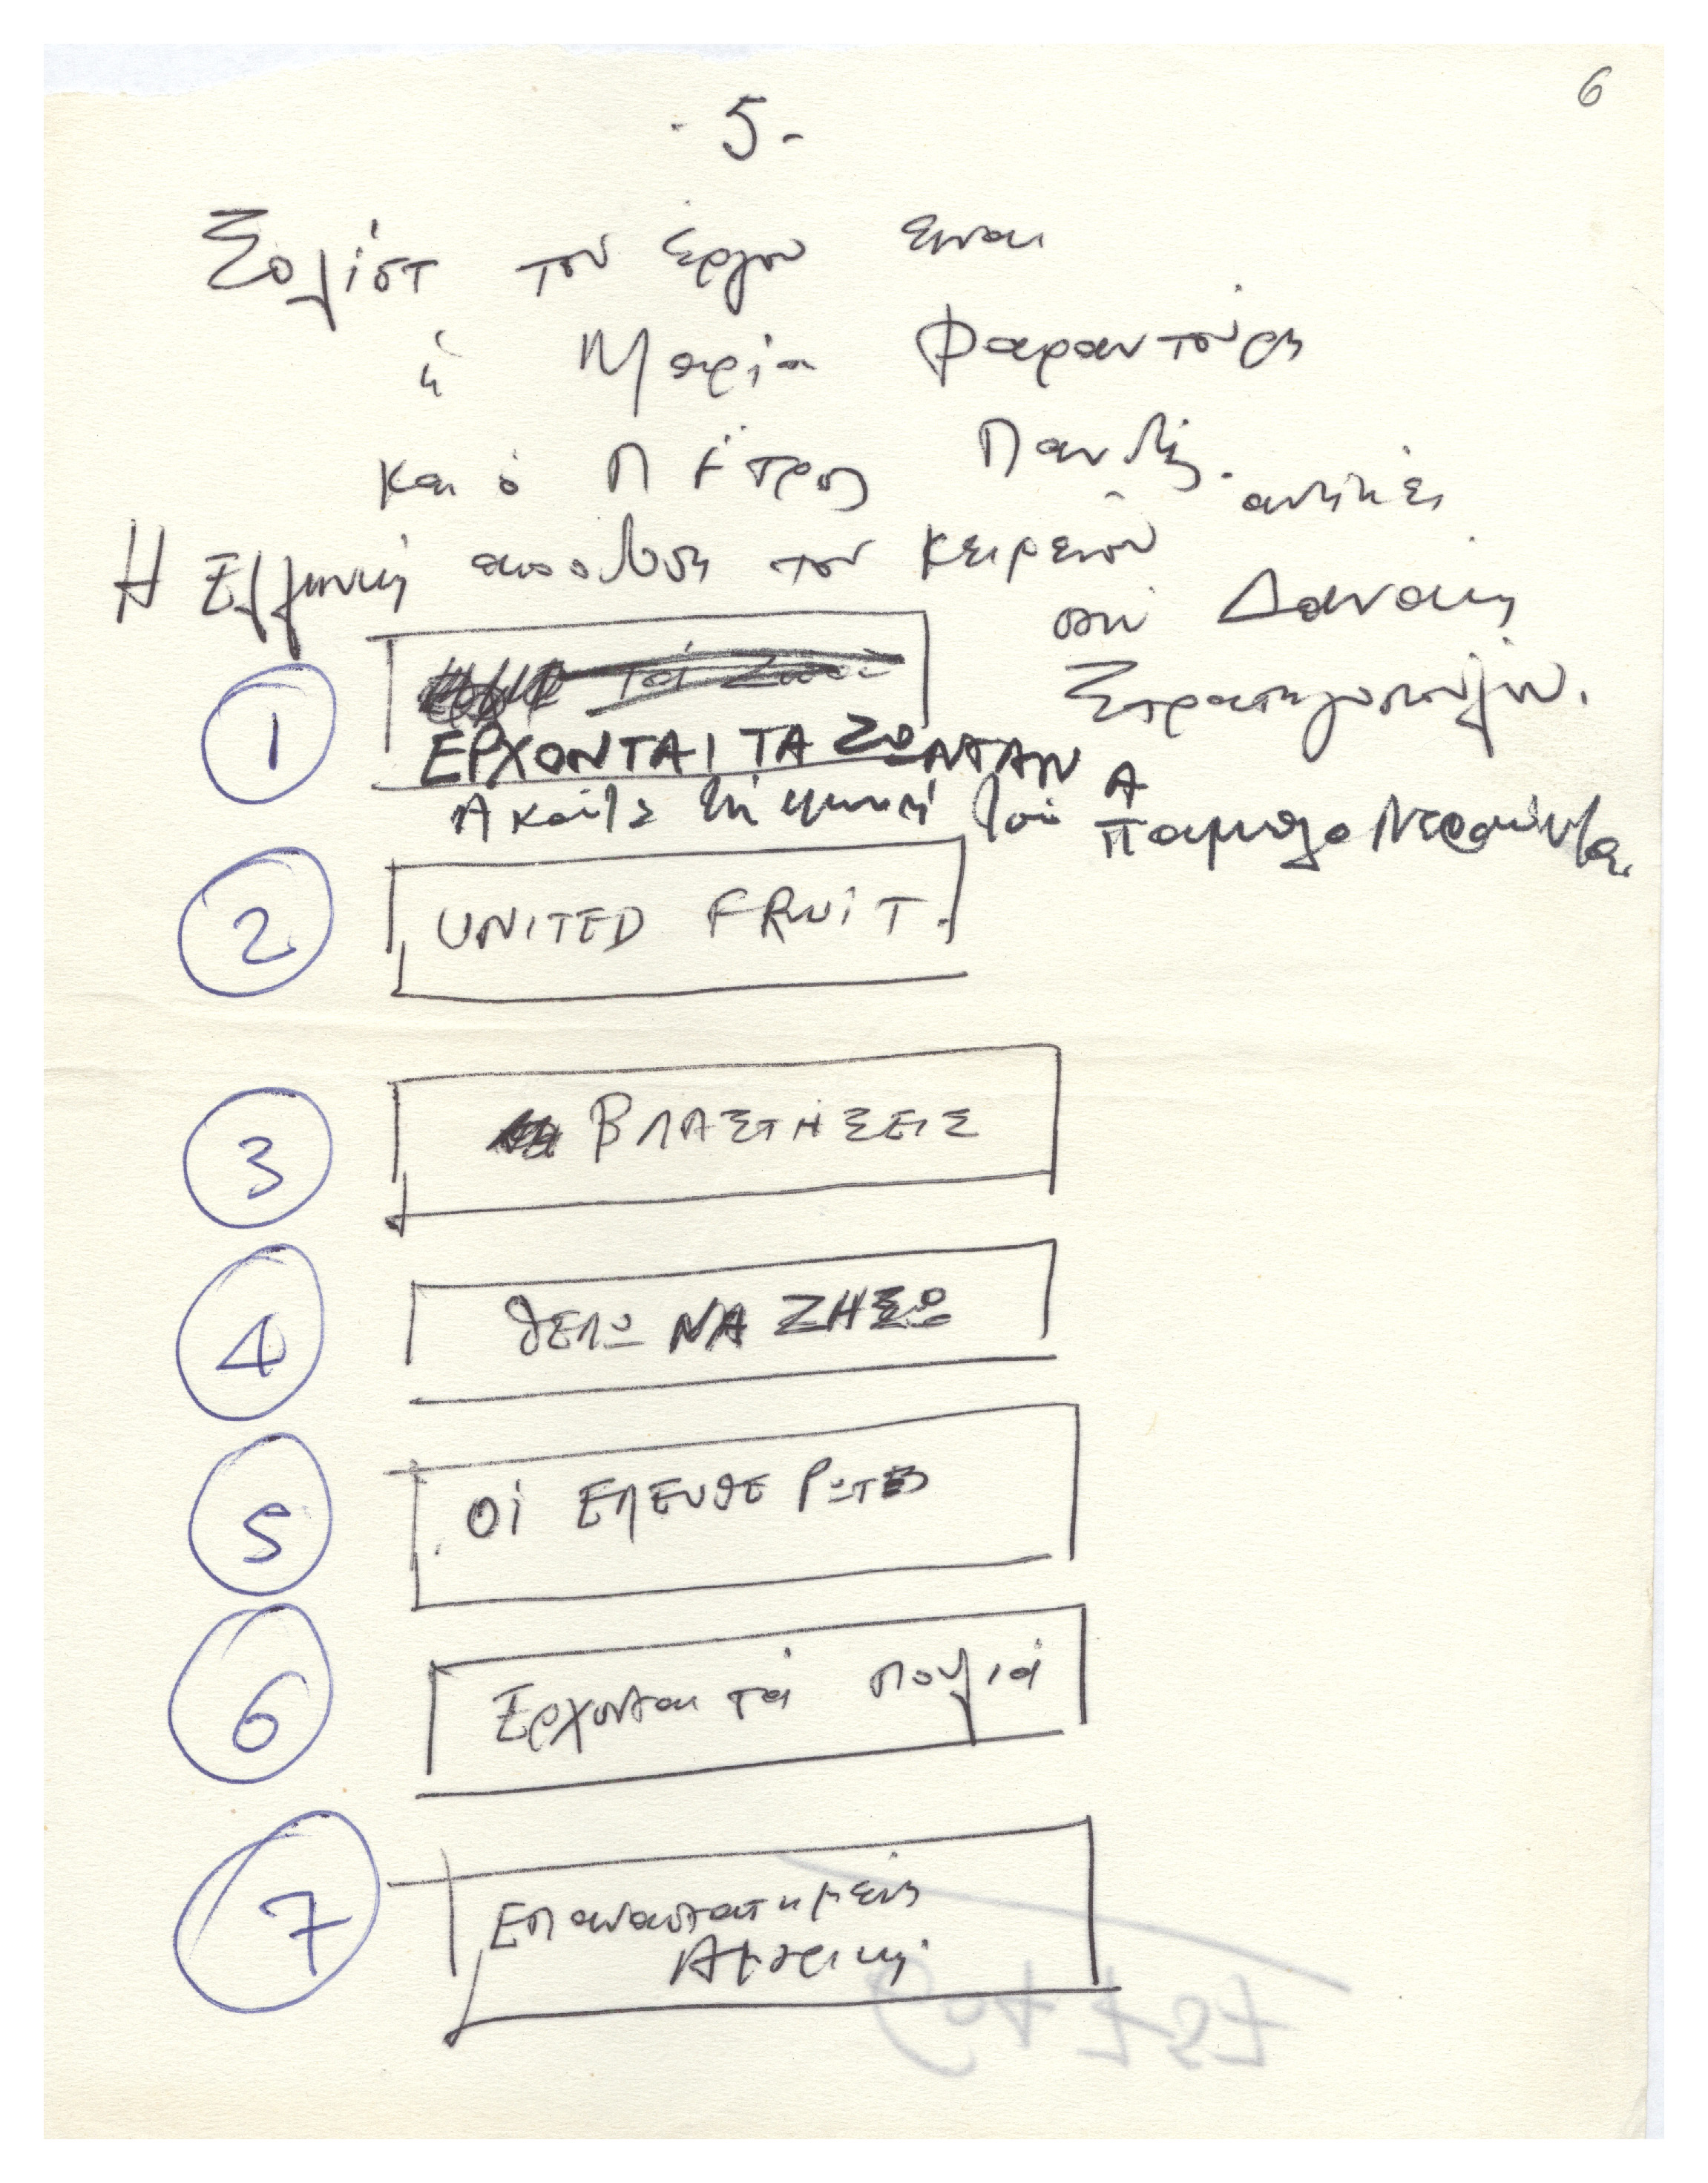 6
- 5 -
Σολίστ τού έργου είναι
ή Μαρία Φαραντούρη
και ό Πέτρος Πανδής.
Η Ελληνική απόδοση του κειμένου ανήκει
στή Δανάη
Στρατηγοπούλου.
1
Τά Ζωα
ΕΡΧΟΝΤΑΙ ΤΑ ΖΩΝΤΑΝΑ
Ακούτε τή φωνή τού Πάμπλο Νερούντα.
2 UNITED FRUIT.
3 ΒΛΑΣΤΗΣΕΙΣ
4 ΘΕΛΩ ΝΑ ΖΗΣΩ
5 ΟΙ ΕΛΕΥΘΕΡΩΤΕΣ
6 Ερχονται τά πουλιά
7 Επαναστατημένη
Αμερική